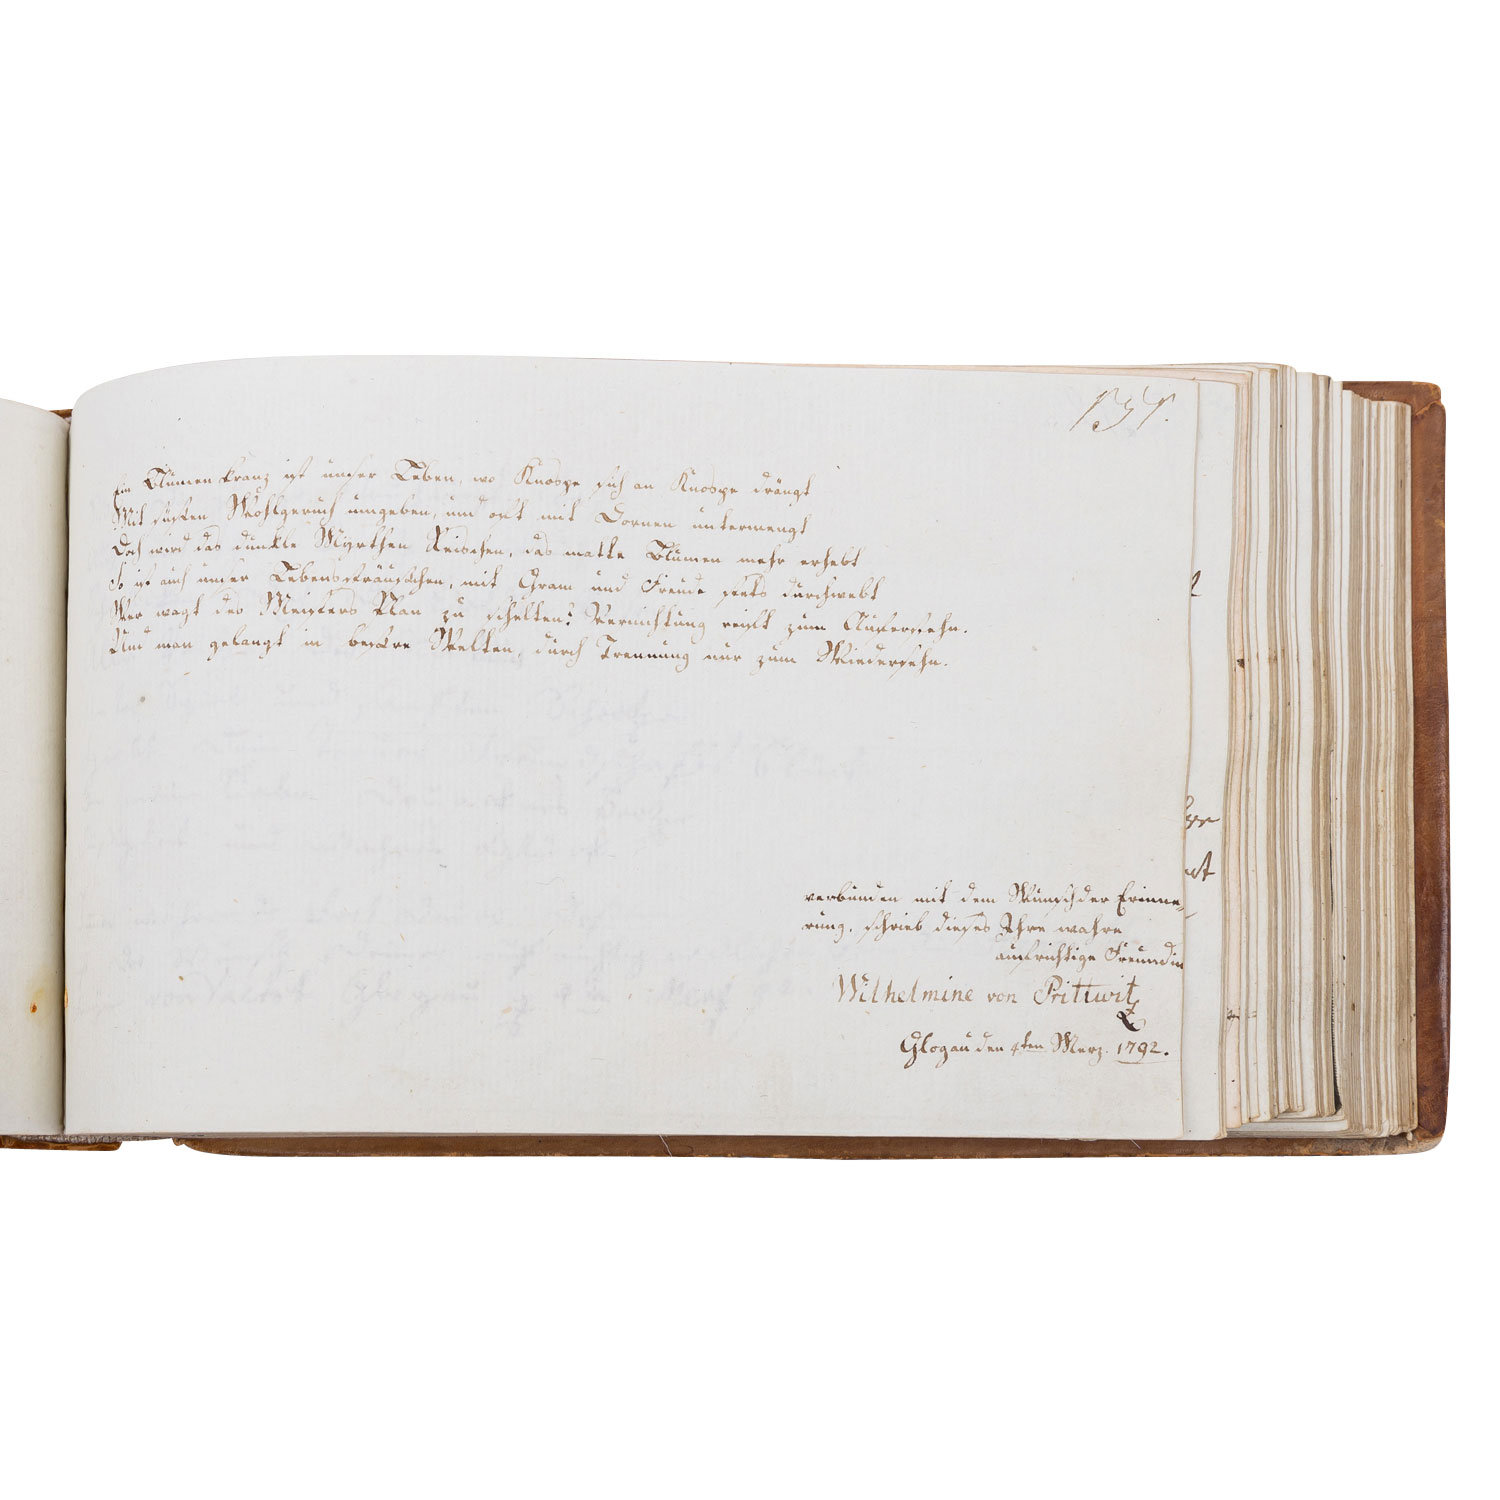 137.
Ein Blumenkranz ist unser Leben, wo Knospe sich an Knospe drängt
Mit süssen Wohlgeruch umgeben, und oft mit Dornen untermengt
Doch wird das dunkle Myrthen Reischen, das matte Blumen mehr erhebt
So ist auch unser Lebenssträuschen, mit Gram und Freude stets durchwebt
Wer wagt des Meisters Plan zu schelten? Vernichtung reift zum Auferstehn.
Und man gelangt in bessre Welten, durch Trennung nur zum Wiedersehn.
verbunden mit dem Wunsch der Erinne-
rung, schrieb dieses Ihre wahre
aufrichtige Freundin
Wilhelmine von Prittwitz
Glogau den 4ten Merz. 1792.